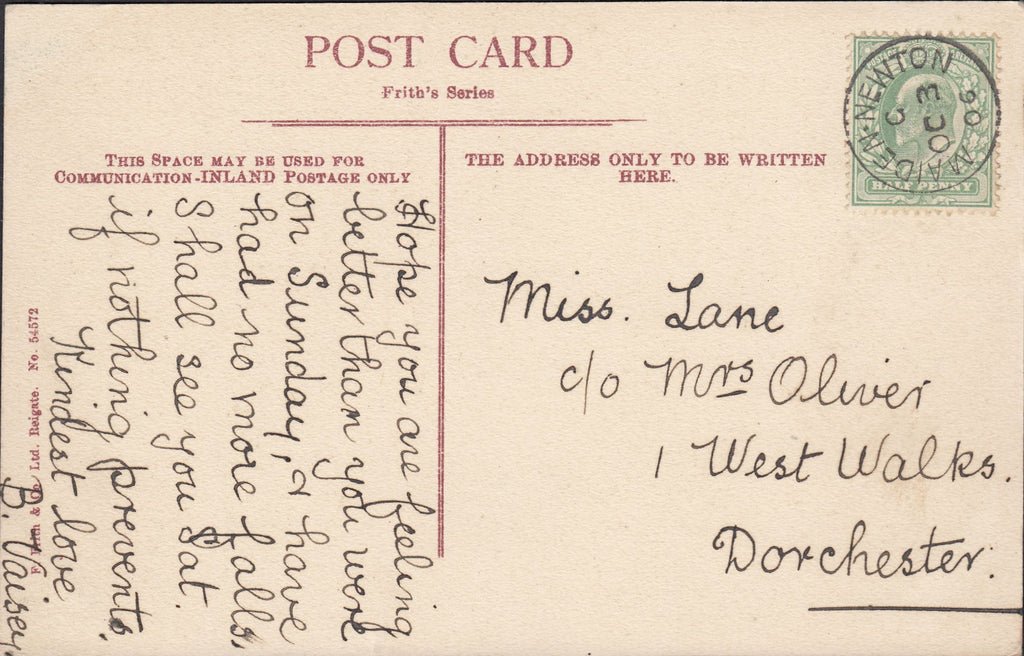 POST CARD
Frith's Series
THIS SPACE MAY BE USED FOR
COMMUNICATION-INLAND POSTAGE ONLY
THE ADDRESS ONLY TO BE WRITTEN
HERE.
MAIDEN-NEWTON
C
OC 3
06
HALF PENNY
Hope you are feeling
better than you were
on Sunday, & have
had no more falls,
Shall see you Sat.
if nothing prevents,
Kindest love
B. Vaisey,
Miss. Lane
c/o Mrs Oliver
1 West Walks.
Dorchester.
F. Frith & Co. Ltd. Reigate. No. 54572